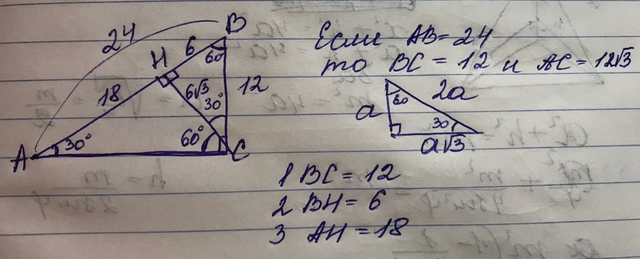 24
B
H
6
60
Если AB = 24
то BC = 12 и AC = 12√3
18
6√3
30°
12
60
2a
a
30
a√3
A
30°
60°
C
1 BC = 12
2 BH = 6
3 AH = 18